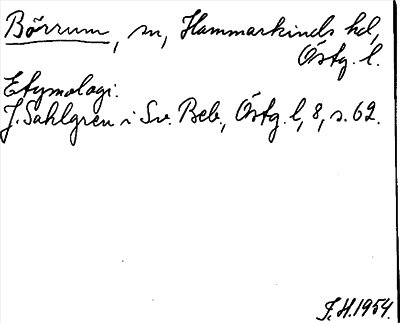 Börrum, sn, Hammarkinds hd,
Östg. l.
Etymologi:
J. Sahlgren i Sv. Beb., Östg. l, 8, s. 62.
J.H.1954.